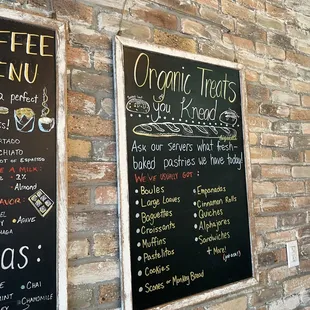 OFFEE
ENU
a perfect
RTADO
CHIATO
OT OF ESPRESSO
E A MILK:
2%
Almond
AVOR
as:
CHAI
INT
CHAMOMILE
Organic Treats
You Knead
Ask our servers what fresh-
baked pastries we have today!
We've usually got:
Boules
Large Loaves
Baguettes
Croissants
Muffins
Pastelitos
Cookies
Scones or Monkey Bread
Empanadas
Cinnamon Rolls
Quiches
Alphajores
Sandwiches
+ More!